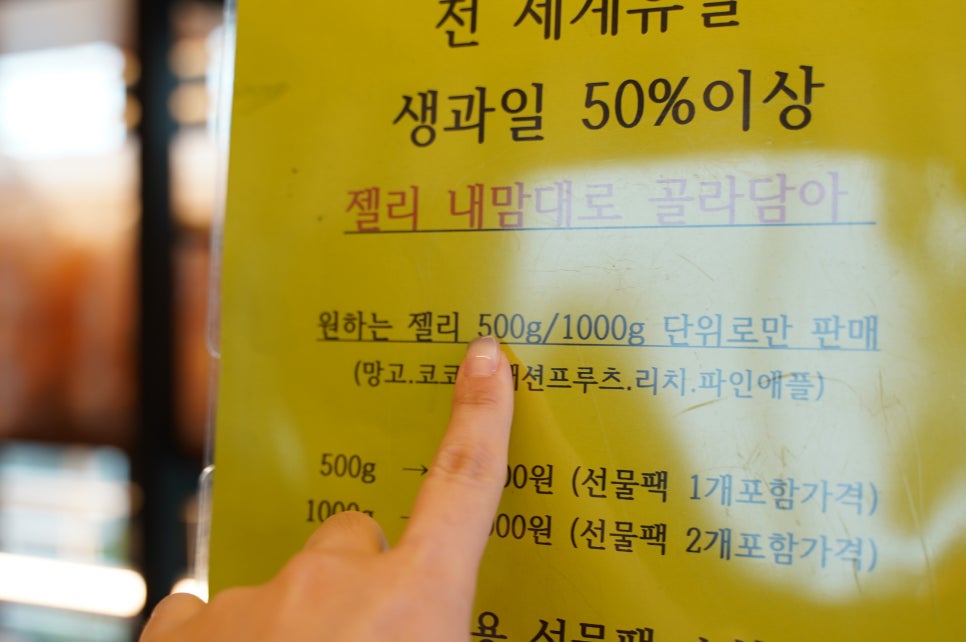 전 세계유일
생과일 50%이상
젤리 내맘대로 골라담아
원하는 젤리 500g/1000g 단위로만 판매
(망고.코코 션프루츠.리치.파인애플)
500g → 00원 (선물팩 1개포함가격)
1000g 000원 (선물팩 2개포함가격)
용 선물팩